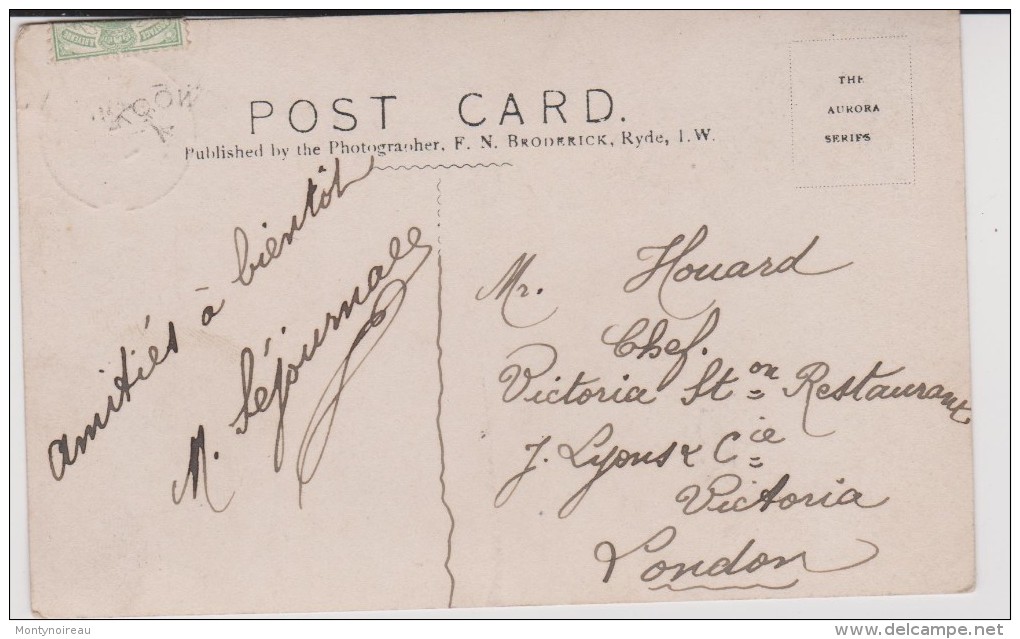 POST CARD.
Published by the Photographer, F. N. BRODERICK, Ryde, I.W.
THE
AURORA
SERIES
amitiés à bientôt
M. Séjournaee
Mr. Houard
Chef.
Victoria St=on Restaurant
J. Lyons & Cie
Victoria
London
Montynoireau
www.delcampe.net